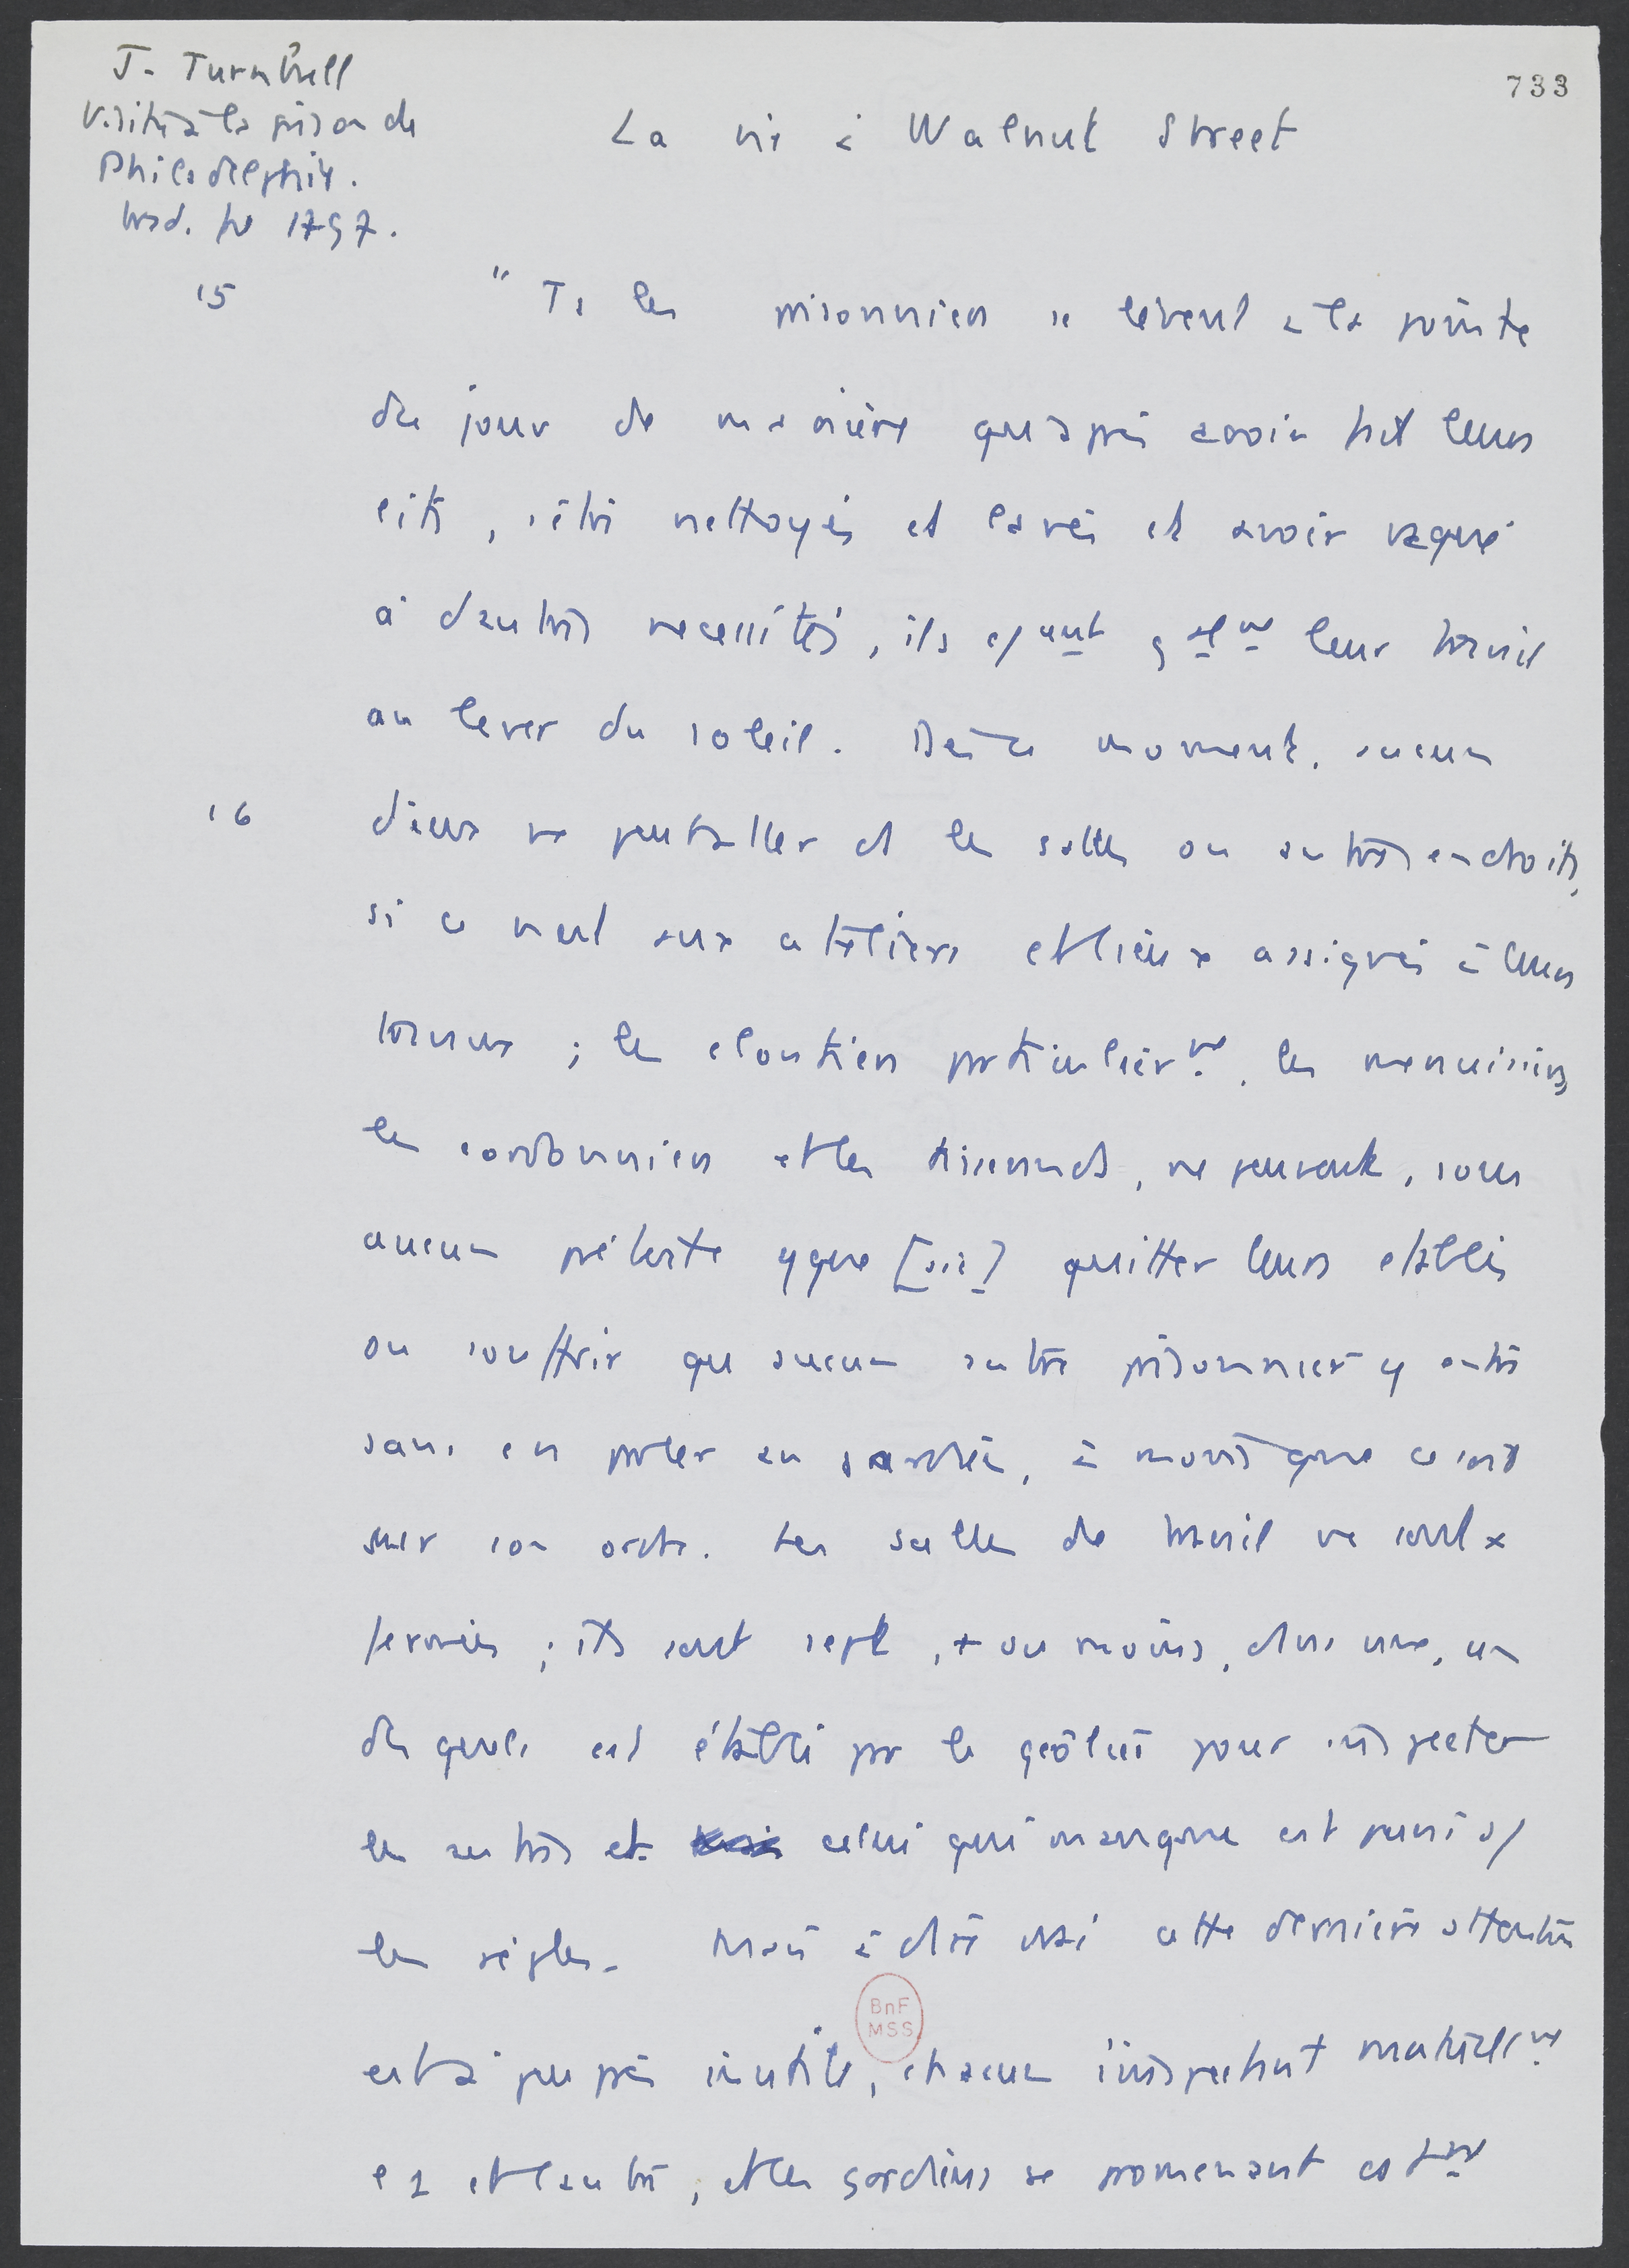 J. Turnbull
Visite à la prison de
Philadelphie.
trad. fr 1797.
733
La vie à Walnut Street
15
" Ts les prisonniers se lèvent à la pointe
du jour de manière qu'après avoir fait leurs
lits, s'être nettoyés et lavés et avoir vaqué
à d'autres necessités, ils cput galmt leur travail
au lever du soleil. Dès ce moment, aucun
16
d'eux ne peut aller ds les salles ou autres endroits,
si ce n'est aux ateliers et lieux assignés à leurs
travaux ; les cloutiers particulièrmt, les menuisiers,
les cordonniers et les tisserands, ne peuvent, sous
aucun prétexte qque [sic] quitter leurs établis
ou souffrir qu'aucun autre prisonnier y entre
sans en parler au gardien, à moins que ce soit
sur son ordre. Les salles de travail ne sont x
fermées ; ils sont sept, + ou moins, dans une, un
desquels est établi par le geôlier pour inspecter
les autres et celui qui manque est puni s/
les règles. Mais à dire vrai cette dernière attention
est à peu près inutile, chacun s'inspectant mutuellmt
BnF
MSS
l'1 et l'autre, et les gardiens se promenant cstmt